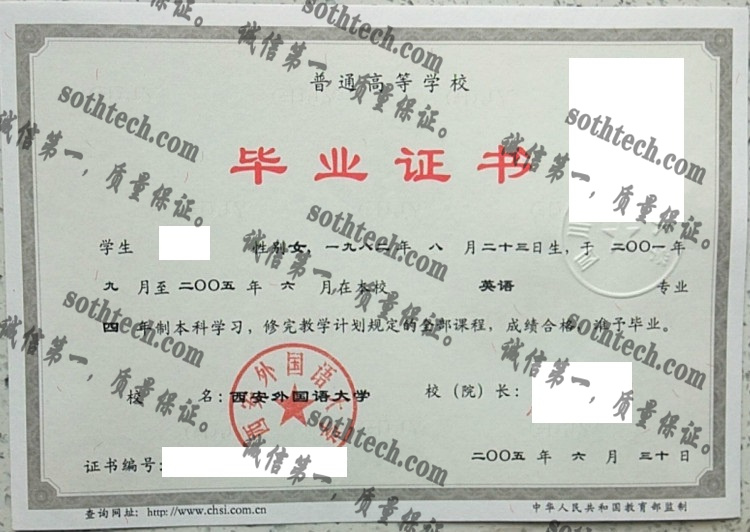 普通高等学校
毕业证书
学生 性别女，一九八二年 八 月二十三日生，于 二〇〇一年
九 月至 二〇〇五 年 六 月在本校 英语 专业
四 年制本科学习，修完教学计划规定的全部课程，成绩合格，准予毕业。
校 名：西安外国语大学 校（院）长：
证书编号：
二〇〇五 年 六 月 三十日
查询网址：http://www.chsi.com.cn 中华人民共和国教育部监制
sothtech.com
诚信第一，质量保证。
sothtech.com
诚信第一，质量保证。
sothtech.com
诚信第一，质量保证。
sothtech.com
诚信第一，质量保证。
sothtech.com
诚信第一，质量保证。
sothtech.com
诚信第一，质量保证。
sothtech.com
诚信第一，质量保证。